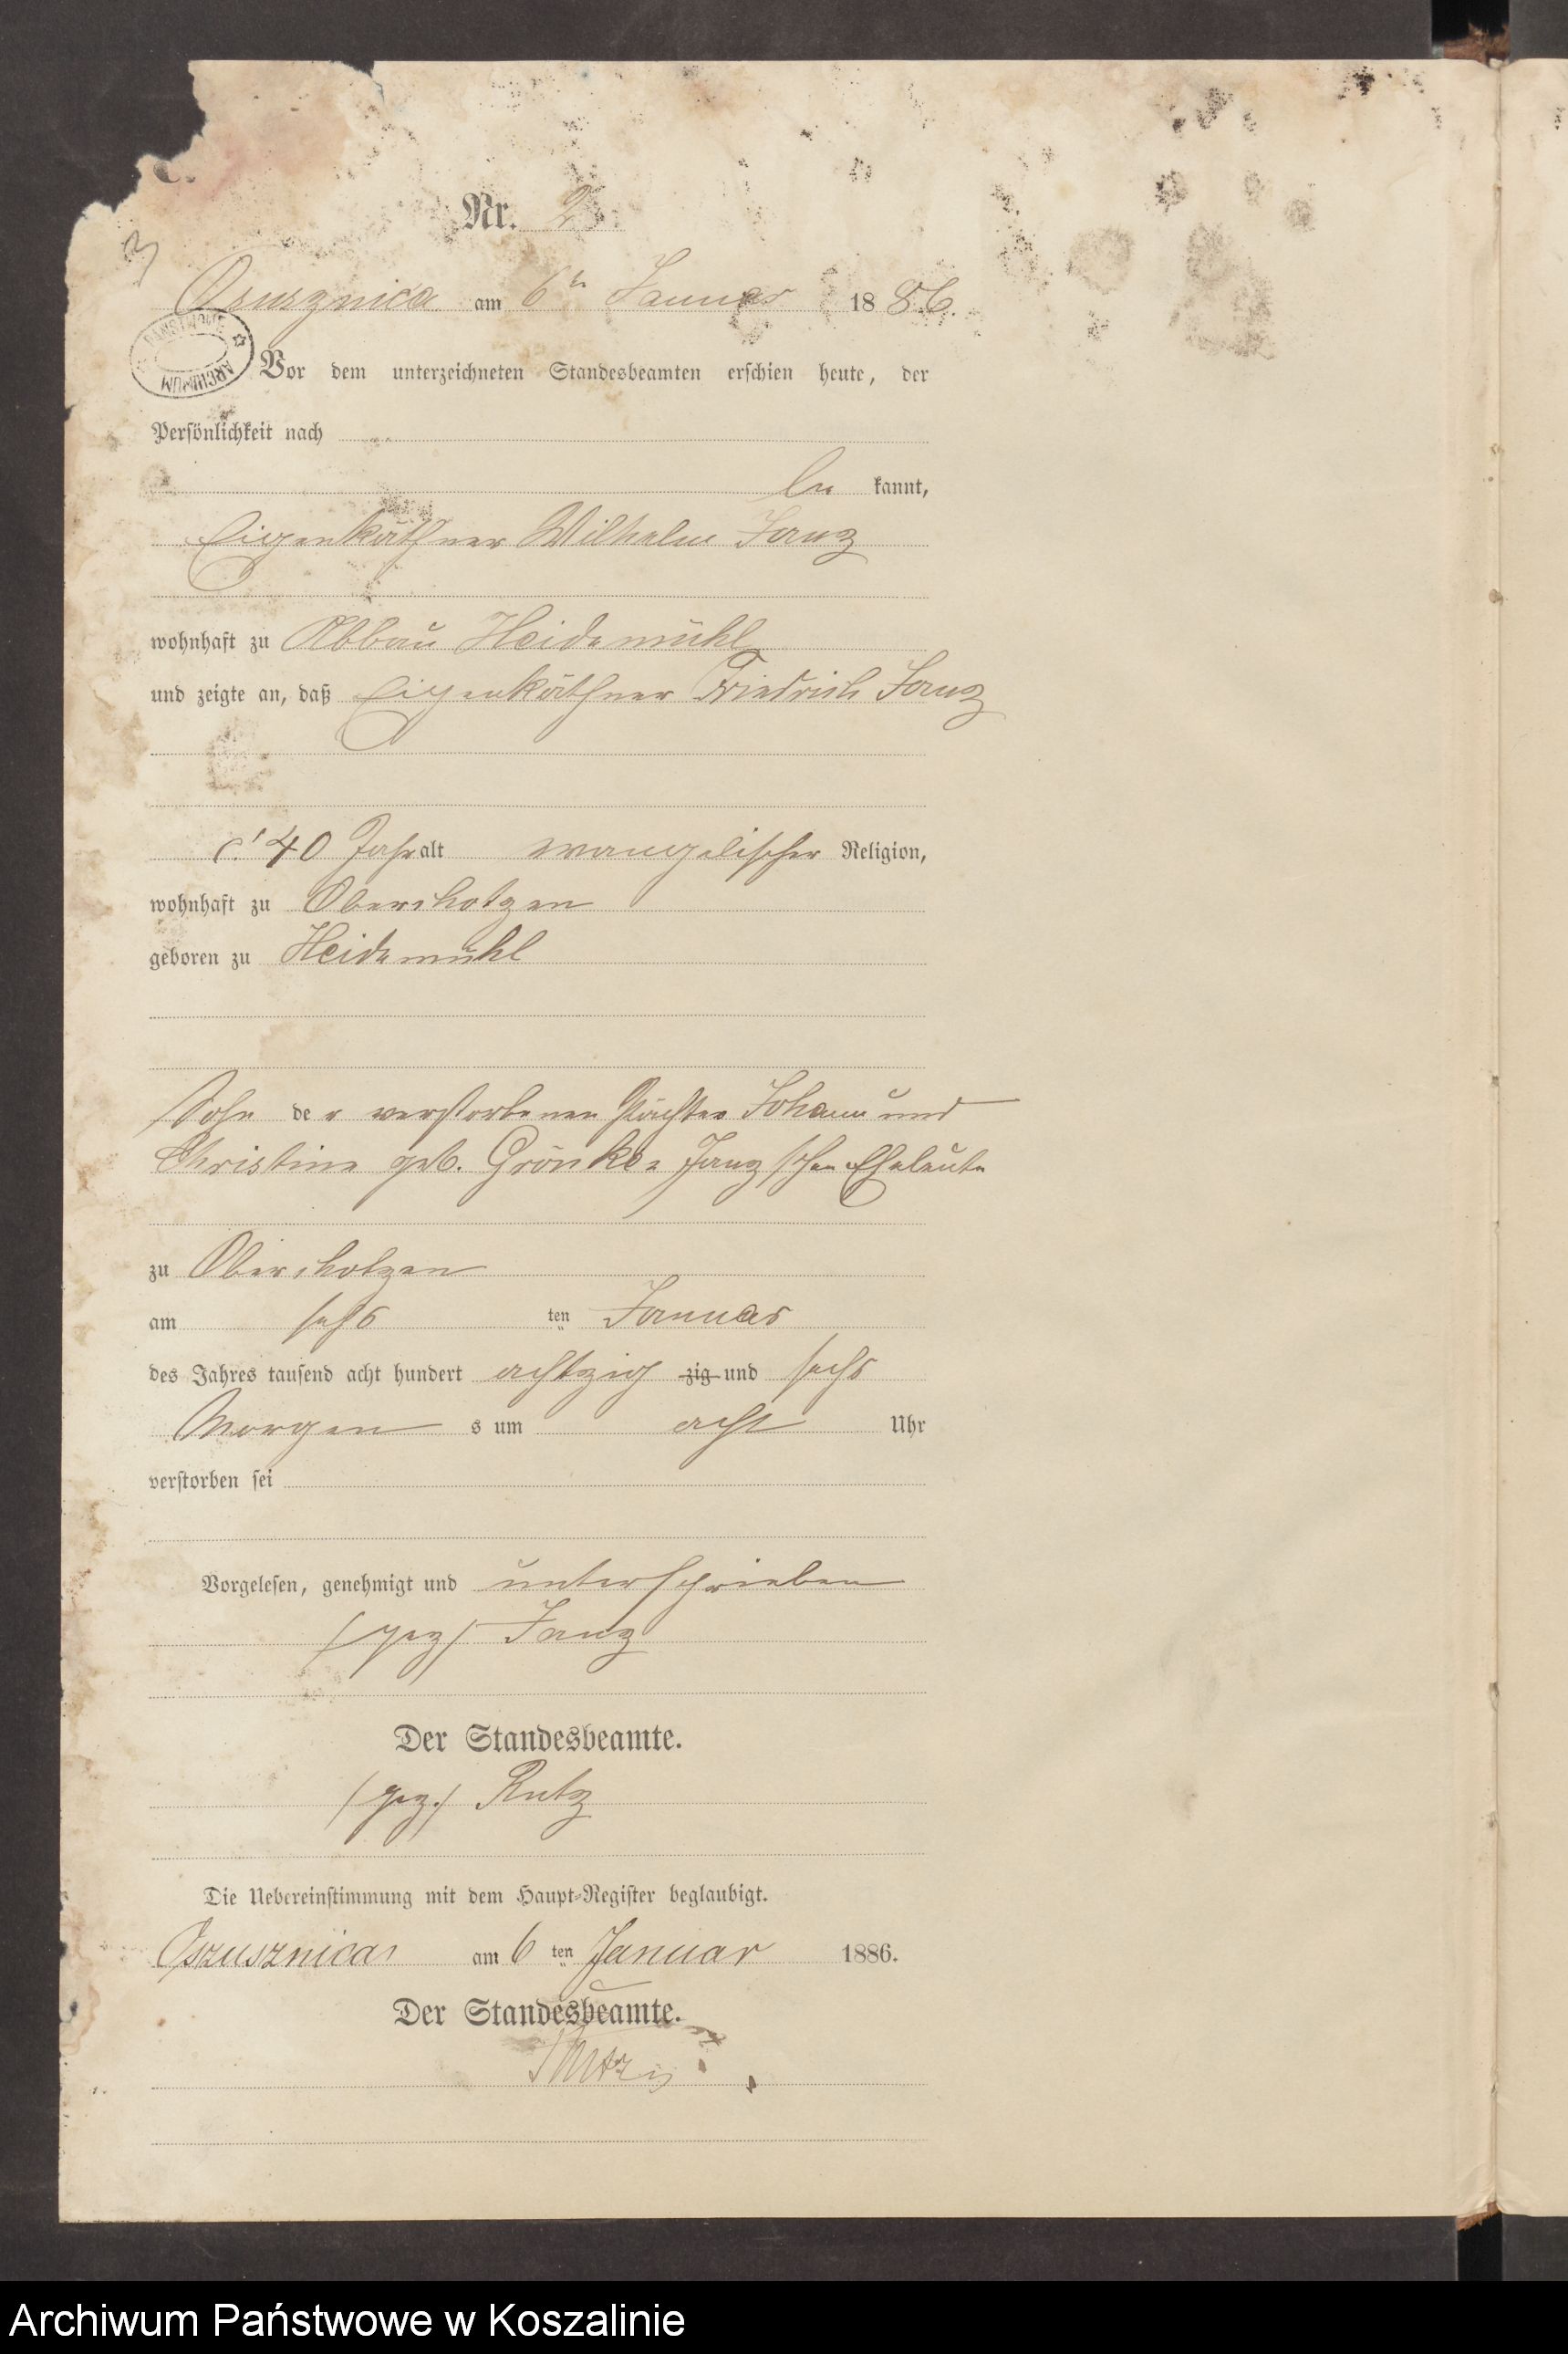 Nr. 2.
3
Osusznica am 6ten Januar 1886.
PAŃSTWOWE ARCHIWUM
Vor dem unterzeichneten Standesbeamten erschien heute, der
Persönlichkeit nach
be kannt,
Eigenkäthner Wilhelm Janz
wohnhaft zu Abbau Heidemühl
und zeigte an, daß Eigenkäthner Friedrich Janz
c! 40 Jahr alt evangelischer Religion,
wohnhaft zu Oberschotzen
geboren zu Heidemühl
Sohn der verstorbenen Pächter Johann und
Christine geb. Grönke - Janz'schen Eheleute
zu Oberschotzen
am sechs ten Januar
des Jahres tausend acht hundert achtzig zig und sechs
Morgen s um acht Uhr
verstorben sei
Vorgelesen, genehmigt und unterschrieben
(gez) Janz
Der Standesbeamte.
(gez.) Rutz
Die Uebereinstimmung mit dem Haupt-Register beglaubigt.
Oszusznica am 6 ten Januar 1886.
Der Standesbeamte.
Rutz
Archiwum Państwowe w Koszalinie